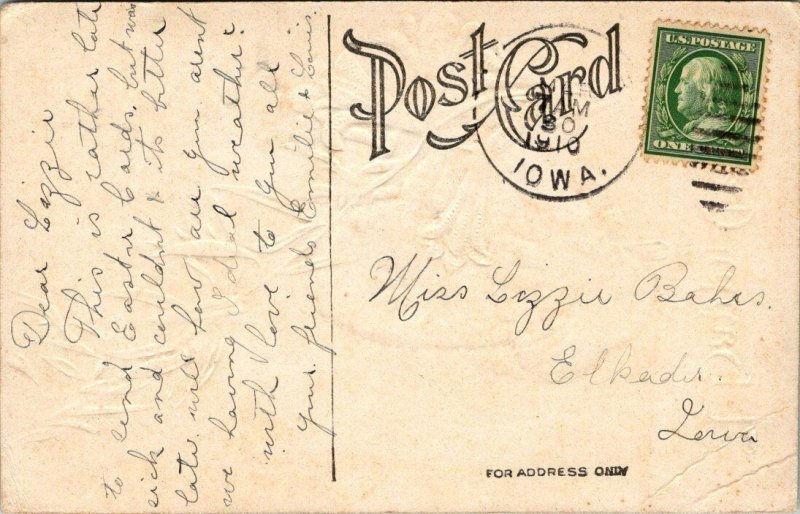 Dear Lizzie
This is rather late
to send Easter Cards, but was
sick and couldn't & its better
late. well how are you. arent
we having Ideal weather?
with love to you all
your friends Emilie & Louis.
Post Card
U.S. POSTAGE
ONE
M
30
1910
IOWA.
Miss Lizzie Bahrs.
Elkader.
Iowa
FOR ADDRESS ONLY